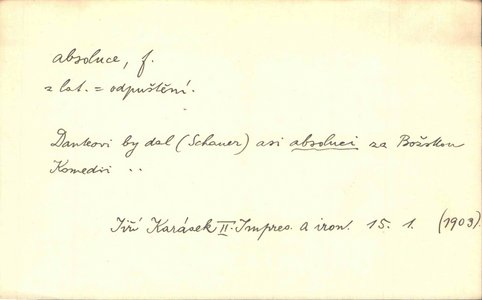 absoluce, f.
z lat. = odpuštění.
Dantovi by dal (Schauer) asi absoluci za Božskou
Komedii ..
Jiří Karásek II. Impres. a iron. 15. 1. (1903).